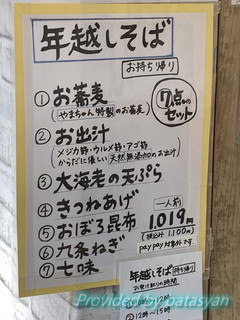 年越しそば
お持ち帰り
7点のセット
① お蕎麦
(やまちゃん特製のお蕎麦)
② お出汁
(メジカ節・ウルメ節・アゴ節
からだに優しい天然無添加のお出汁)
③ 大海老の天ぷら
④ きつねあげ
⑤ おぼろ昆布
⑥ 九条ねぎ
⑦ 七味
一人前
1,019円
(税込み1,100円)
paypay対象外です。
年越しそば 持ち帰り
お受け取りの時間
② 12時〜15時
Provided by patasyan